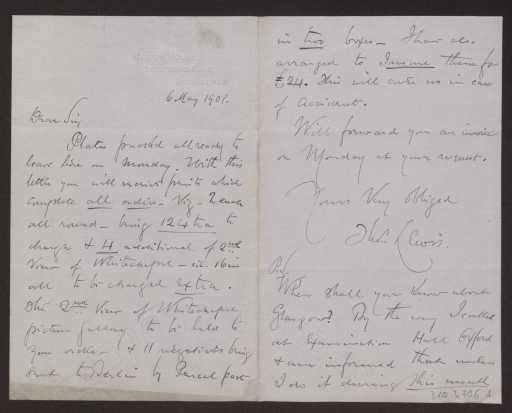 6 May 1901.
Dear Sir
Plates packed all ready to
leave here on Monday. With this
letter you will receive prints which
complete all orders - Viz -
all round - being 12 extra to
charge & 4 additional of 2nd
View of Whitechapel - i.e. 16 in
all to be charged extra.
The 2nd View of Whitechapel
picture gallery to be held to
your order - & 11 negatives being
sent to Berlin by Parcel post
in two boxes - I have also
arranged to Insure them for
£24. This will cover us in case
of Accident.
Will forward you an invoice
on Monday at your request.
Yours Very Obliged
Thos Lewis.
P.S.
When shall you know about
Glasgow? By the way I called
at Examination Hall Oxford
& am informed that unless
I do it during this month